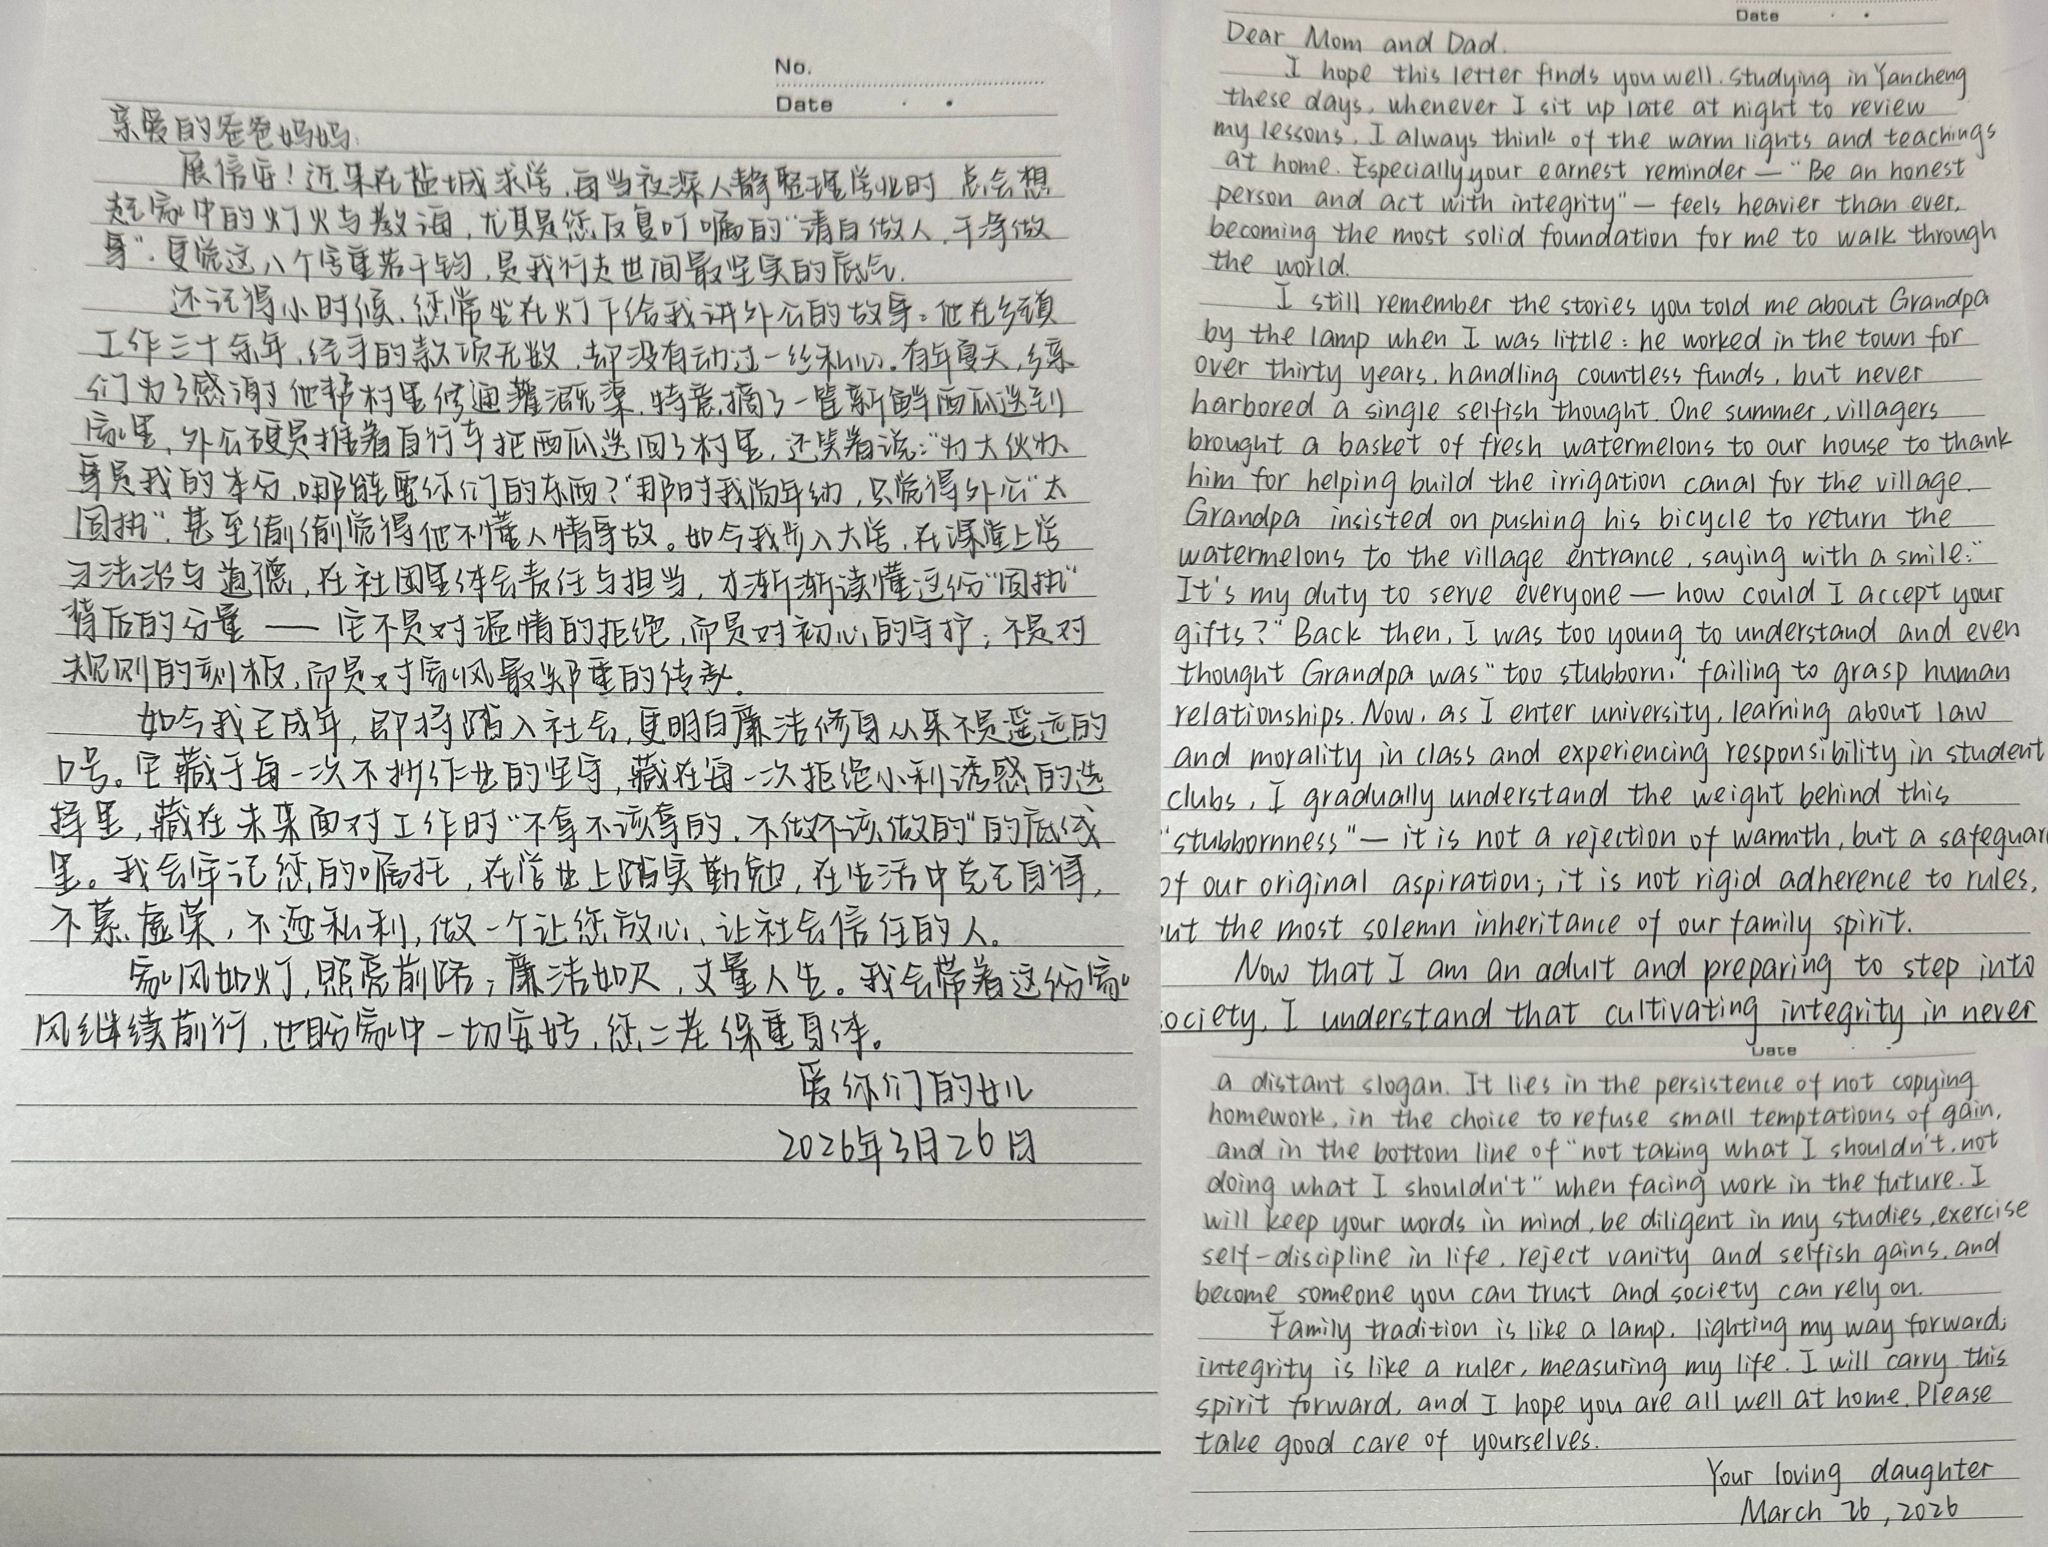 No.
Date
亲爱的爸爸妈妈:
展信安！近来在盐城求学,每当夜深人静整理学业时,总会想
起家中的灯火与教诲,尤其是您反复叮嘱的“清白做人,干净做
事”.更觉这八个字重若千钧,是我行走世间最坚实的底气.
还记得小时候,您常坐在灯下给我讲外公的故事。他在乡镇
工作三十余年,经手的款项无数,却没有动过一丝私心。有年夏天,乡亲
们为了感谢他帮村里修通灌溉渠,特意摘了一筐新鲜西瓜送到
家里,外公硬是推着自行车把西瓜送回了村里,还笑着说:“为大伙办
事是我的本分,哪能要你们的东西?”那时我尚年幼,只觉得外公“太
固执”,甚至偷偷觉得他不懂人情世故。如今我步入大学,在课堂上学
习法治与道德,在社团里体会责任与担当,才渐渐读懂这份“固执”
背后的分量——它不是对温情的拒绝,而是对初心的守护;不是对
规则的刻板,而是对家风最郑重的传承.
如今我已成年,即将踏入社会,更明白廉洁修身从来不是遥远的
口号。它藏于每一次不抄作业的坚守,藏在每一次拒绝小利诱惑的选
择里,藏在未来面对工作时“不拿不该拿的,不做不该做的”的底线
里。我会牢记您的嘱托,在学业上踏实勤勉,在生活中克己自律,
不慕虚荣,不逐私利,做一个让您放心、让社会信任的人。
家风如灯,照亮前路;廉洁如尺,丈量人生。我会带着这份家
风继续前行,也盼家中一切安好,您二老保重身体。
爱你们的女儿
2026年3月26日
Date
Dear Mom and Dad.
I hope this letter finds you well. Studying in Yancheng
these days, whenever I sit up late at night to review
my lessons, I always think of the warm lights and teachings
at home. Especially your earnest reminder — "Be an honest
person and act with integrity" — feels heavier than ever,
becoming the most solid foundation for me to walk through
the world.
I still remember the stories you told me about Grandpa
by the lamp when I was little: he worked in the town for
over thirty years, handling countless funds, but never
harbored a single selfish thought. One summer, villagers
brought a basket of fresh watermelons to our house to thank
him for helping build the irrigation canal for the village.
Grandpa insisted on pushing his bicycle to return the
watermelons to the village entrance, saying with a smile:"
It's my duty to serve everyone — how could I accept your
gifts?" Back then, I was too young to understand and even
thought Grandpa was "too stubborn." failing to grasp human
relationships. Now, as I enter university, learning about law
and morality in class and experiencing responsibility in student
clubs, I gradually understand the weight behind this
"stubbornness" — it is not a rejection of warmth, but a safeguar
of our original aspiration; it is not rigid adherence to rules,
ut the most solemn inheritance of our family spirit.
Now that I am an adult and preparing to step into
ociety, I understand that cultivating integrity in never
Date
a distant slogan. It lies in the persistence of not copying
homework, in the choice to refuse small temptations of gain,
and in the bottom line of "not taking what I shouldn't, not
doing what I shouldn't" when facing work in the future. I
will keep your words in mind, be diligent in my studies, exercise
self-discipline in life, reject vanity and selfish gains, and
become someone you can trust and society can rely on.
Family tradition is like a lamp, lighting my way forward;
integrity is like a ruler, measuring my life. I will carry this
spirit forward, and I hope you are all well at home. Please
take good care of yourselves.
Your loving daughter
March 26, 2026